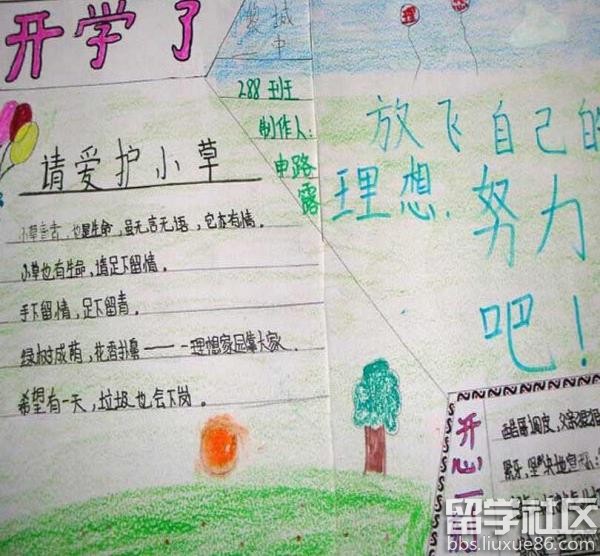 开学了
黎城
中
288班
制作人:
申路
露
理
想
放飞自己的
理想.努力
吧!
请爱护小草
小草青青,也是生命,虽无言无语,它亦有情。
小草也有生命,请足下留情。
手下留情,足下留青。
绿树成荫,花香扑鼻——理想家园靠大家
希望有一天,垃圾也会下岗。
开心一
酷暑
坚决地宣
留学社区
bbs.liuxue86.com